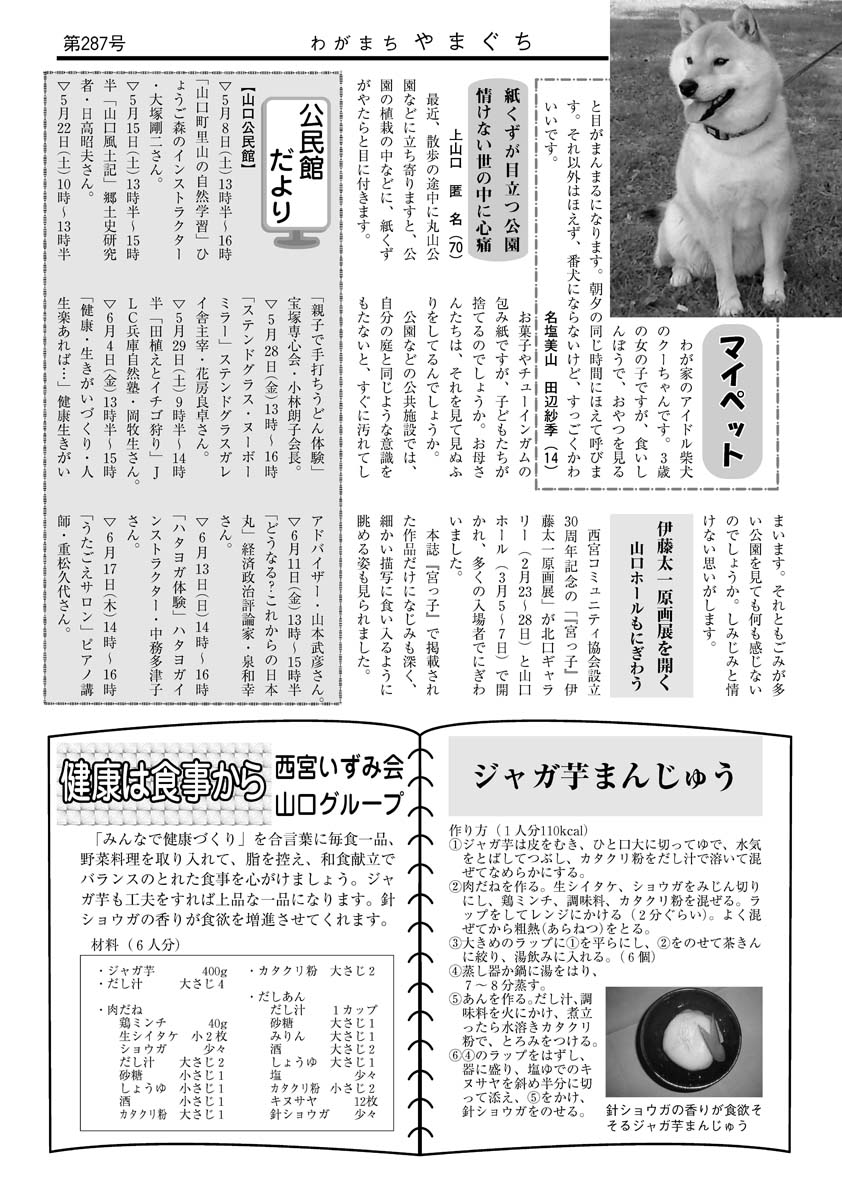 第287号
わがまち やまぐち
マイペット
わが家のアイドル柴犬
のクーちゃんです。3歳
の女の子ですが、食いし
んぼうで、おやつを見る
と目がまんまるになります。朝夕の同じ時間にほえて呼びま
す。それ以外はほえず、番犬にならないけど、すっごくかわ
いいです。
名塩美山 田辺紗季(14)
紙くずが目立つ公園
情けない世の中に心痛
上山口 匿 名(70)
最近、散歩の途中に丸山公
園などに立ち寄りますと、公
園の植栽の中などに、紙くず
がやたらと目に付きます。
お菓子やチューインガムの
包み紙ですが、子どもたちが
捨てるのでしょうか。お母さ
んたちは、それを見て見ぬふ
りをしてるんでしょうか。
公園などの公共施設では、
自分の庭と同じような意識を
もたないと、すぐに汚れてし
まいます。それともごみが多
い公園を見ても何も感じない
のでしょうか。しみじみと情
けない思いがします。
伊藤太一原画展を開く
山口ホールもにぎわう
西宮コミュニティ協会設立
30周年記念の「『宮っ子』伊
藤太一原画展」が北口ギャラ
リー(2月23〜28日)と山口
ホール(3月5〜7日)で開
かれ、多くの入場者でにぎわ
いました。
本誌『宮っ子』で掲載され
た作品だけになじみも深く、
細かい描写に食い入るように
眺める姿も見られました。
公民館
だより
【山口公民館】
▽5月8日(土)13時半〜16時
「山口町里山の自然学習」ひ
ょうご森のインストラクター
・大塚剛二さん。
▽5月15日(土)13時半〜15時
半「山口風土記」郷土史研究
者・日高昭夫さん。
▽5月22日(土)10時〜13時半
「親子で手打ちうどん体験」
宝塚専心会・小林朗子会長。
▽5月28日(金)13時〜16時
「ステンドグラス・ヌーボー
ミラー」ステンドグラスガレ
イ舎主宰・花房良卓さん。
▽5月29日(土)9時半〜14時
半「田植えとイチゴ狩り」J
LC兵庫自然塾・岡牧生さん。
▽6月4日(金)13時半〜15時
「健康・生きがいづくり・人
生楽あれば…」健康生きがい
アドバイザー・山本武彦さん。
▽6月11日(金)13時〜15時半
「どうなる?これからの日本
丸」経済政治評論家・泉和幸
さん。
▽6月13日(日)14時〜16時
「ハタヨガ体験」ハタヨガイ
ンストラクター・中務多津子
さん。
▽6月17日(木)14時〜16時
「うたごえサロン」ピアノ講
師・重松久代さん。
健康は食事から
西宮いずみ会
山口グループ
「みんなで健康づくり」を合言葉に毎食一品、
野菜料理を取り入れて、脂を控え、和食献立で
バランスのとれた食事を心がけましょう。ジャ
ガ芋も工夫をすれば上品な一品になります。針
ショウガの香りが食欲を増進させてくれます。
材料(6人分)
・ジャガ芋 400g
・だし汁 大さじ4
・肉だね
鶏ミンチ 40g
生シイタケ 小2枚
ショウガ 少々
だし汁 大さじ2
砂糖 小さじ1
しょうゆ 小さじ1
酒 小さじ1
カタクリ粉 大さじ1
・カタクリ粉 大さじ2
・だしあん
だし汁 1カップ
砂糖 大さじ1
みりん 大さじ1
酒 大さじ2
しょうゆ 大さじ1
塩 少々
カタクリ粉 小さじ2
キヌサヤ 12枚
針ショウガ 少々
ジャガ芋まんじゅう
作り方(1人分110kcal)
①ジャガ芋は皮をむき、ひと口大に切ってゆで、水気
をとばしてつぶし、カタクリ粉をだし汁で溶いて混
ぜてなめらかにする。
②肉だねを作る。生シイタケ、ショウガをみじん切り
にし、鶏ミンチ、調味料、カタクリ粉を混ぜる。ラ
ップをしてレンジにかける(2分ぐらい)。よく混
ぜてから粗熱(あらねつ)をとる。
③大きめのラップに①を平らにし、②をのせて茶きん
に絞り、湯飲みに入れる。(6個)
④蒸し器か鍋に湯をはり、
7〜8分蒸す。
⑤あんを作る。だし汁、調
味料を火にかけ、煮立
ったら水溶きカタクリ
粉で、とろみをつける。
⑥④のラップをはずし、
器に盛り、塩ゆでのキ
ヌサヤを斜め半分に切
って添え、⑤をかけ、
針ショウガをのせる。
針ショウガの香りが食欲そ
そるジャガ芋まんじゅう